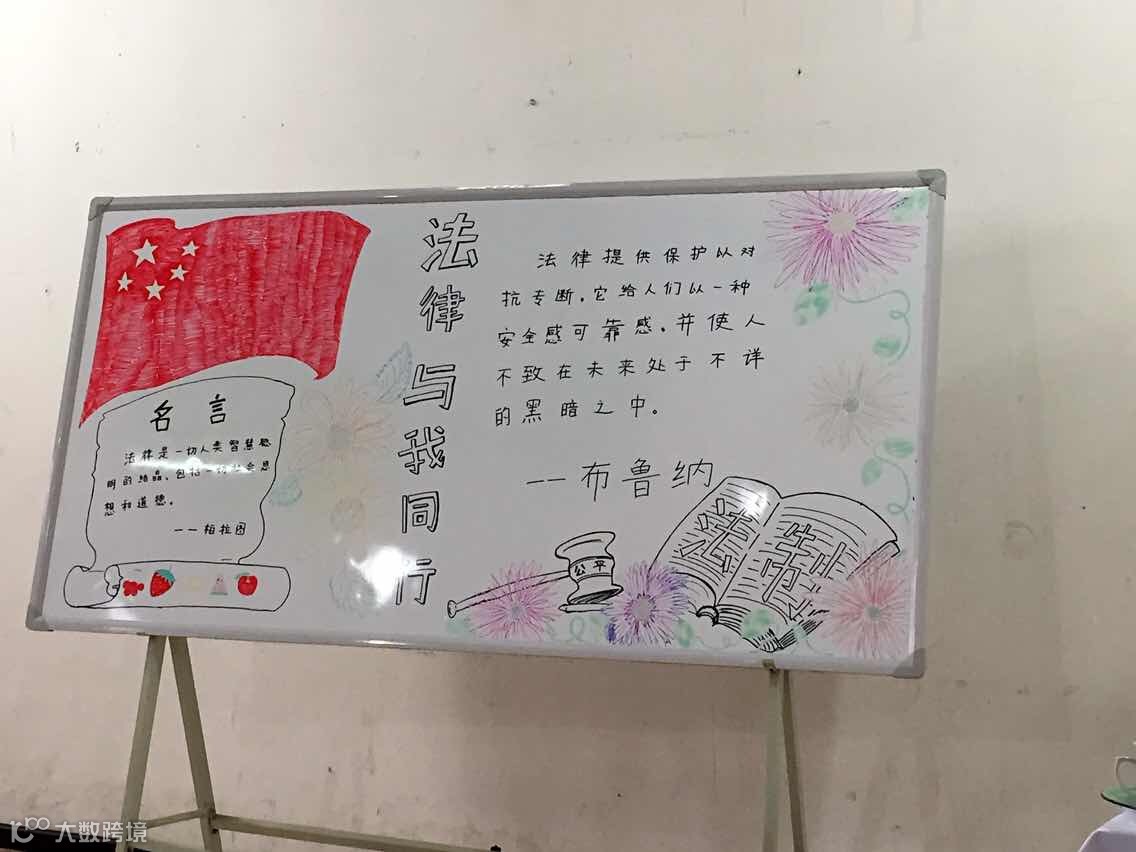 名言
法律是一切人类智慧聪
明的结晶、包括一切社会思
想和道德。
——柏拉图
法律与我同行
法律提供保护以对
抗专断，它给人们以一种
安全感可靠感。并使人
不致在未来处于不详
的黑暗之中。
——布鲁纳
公平
公法
节约
大数跨境